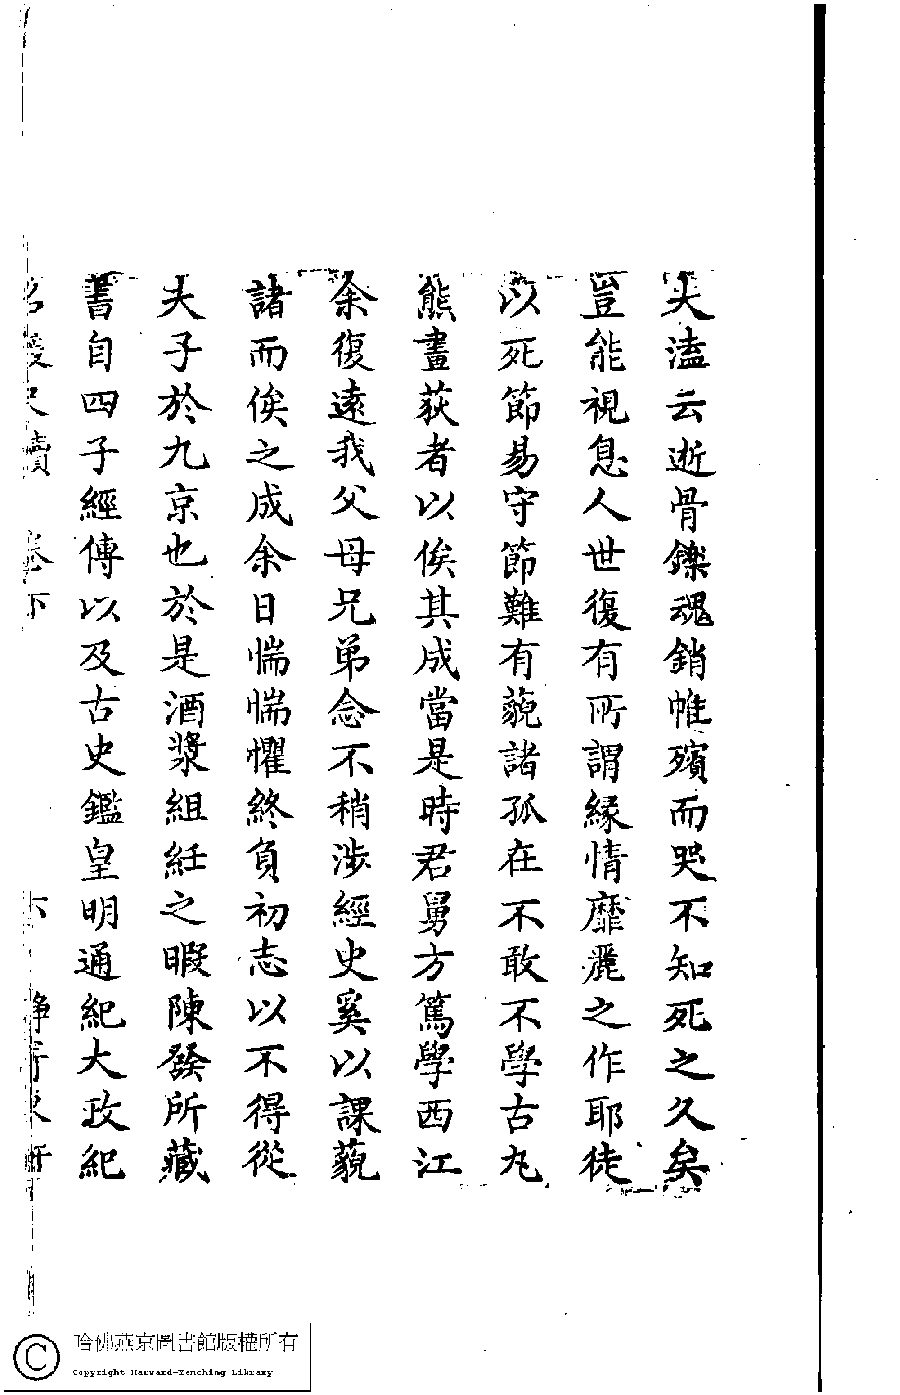 夫溘云逝骨鑠魂銷帷殯而哭不知死之久矣
豈能視息人世復有所謂緣情靡麗之作耶徒
以死節易守節難有藐諸孤在不敢不學古丸
熊畫荻者以俟其成當是時君舅方篤學西江
余復遠我父母兄弟念不稍涉經史奚以課藐
諸而俟之成余日惴惴懼終負初志以不得從
夫子於九京也於是酒漿組紝之暇陳發所藏
書自四子經傳以及古史鑑皇明通紀大政紀
名媛尺牘 卷下 六 靜寄東軒
哈佛燕京圖書館版權所有
Copyright Harvard-Yenching Library